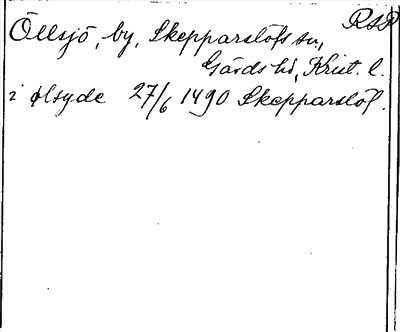 RSD
Öllsjö, by, Skepparslöfs sn,
Gärds hd, Krist. l.
i ølsyde 27/6 1490 Skepparslöf.